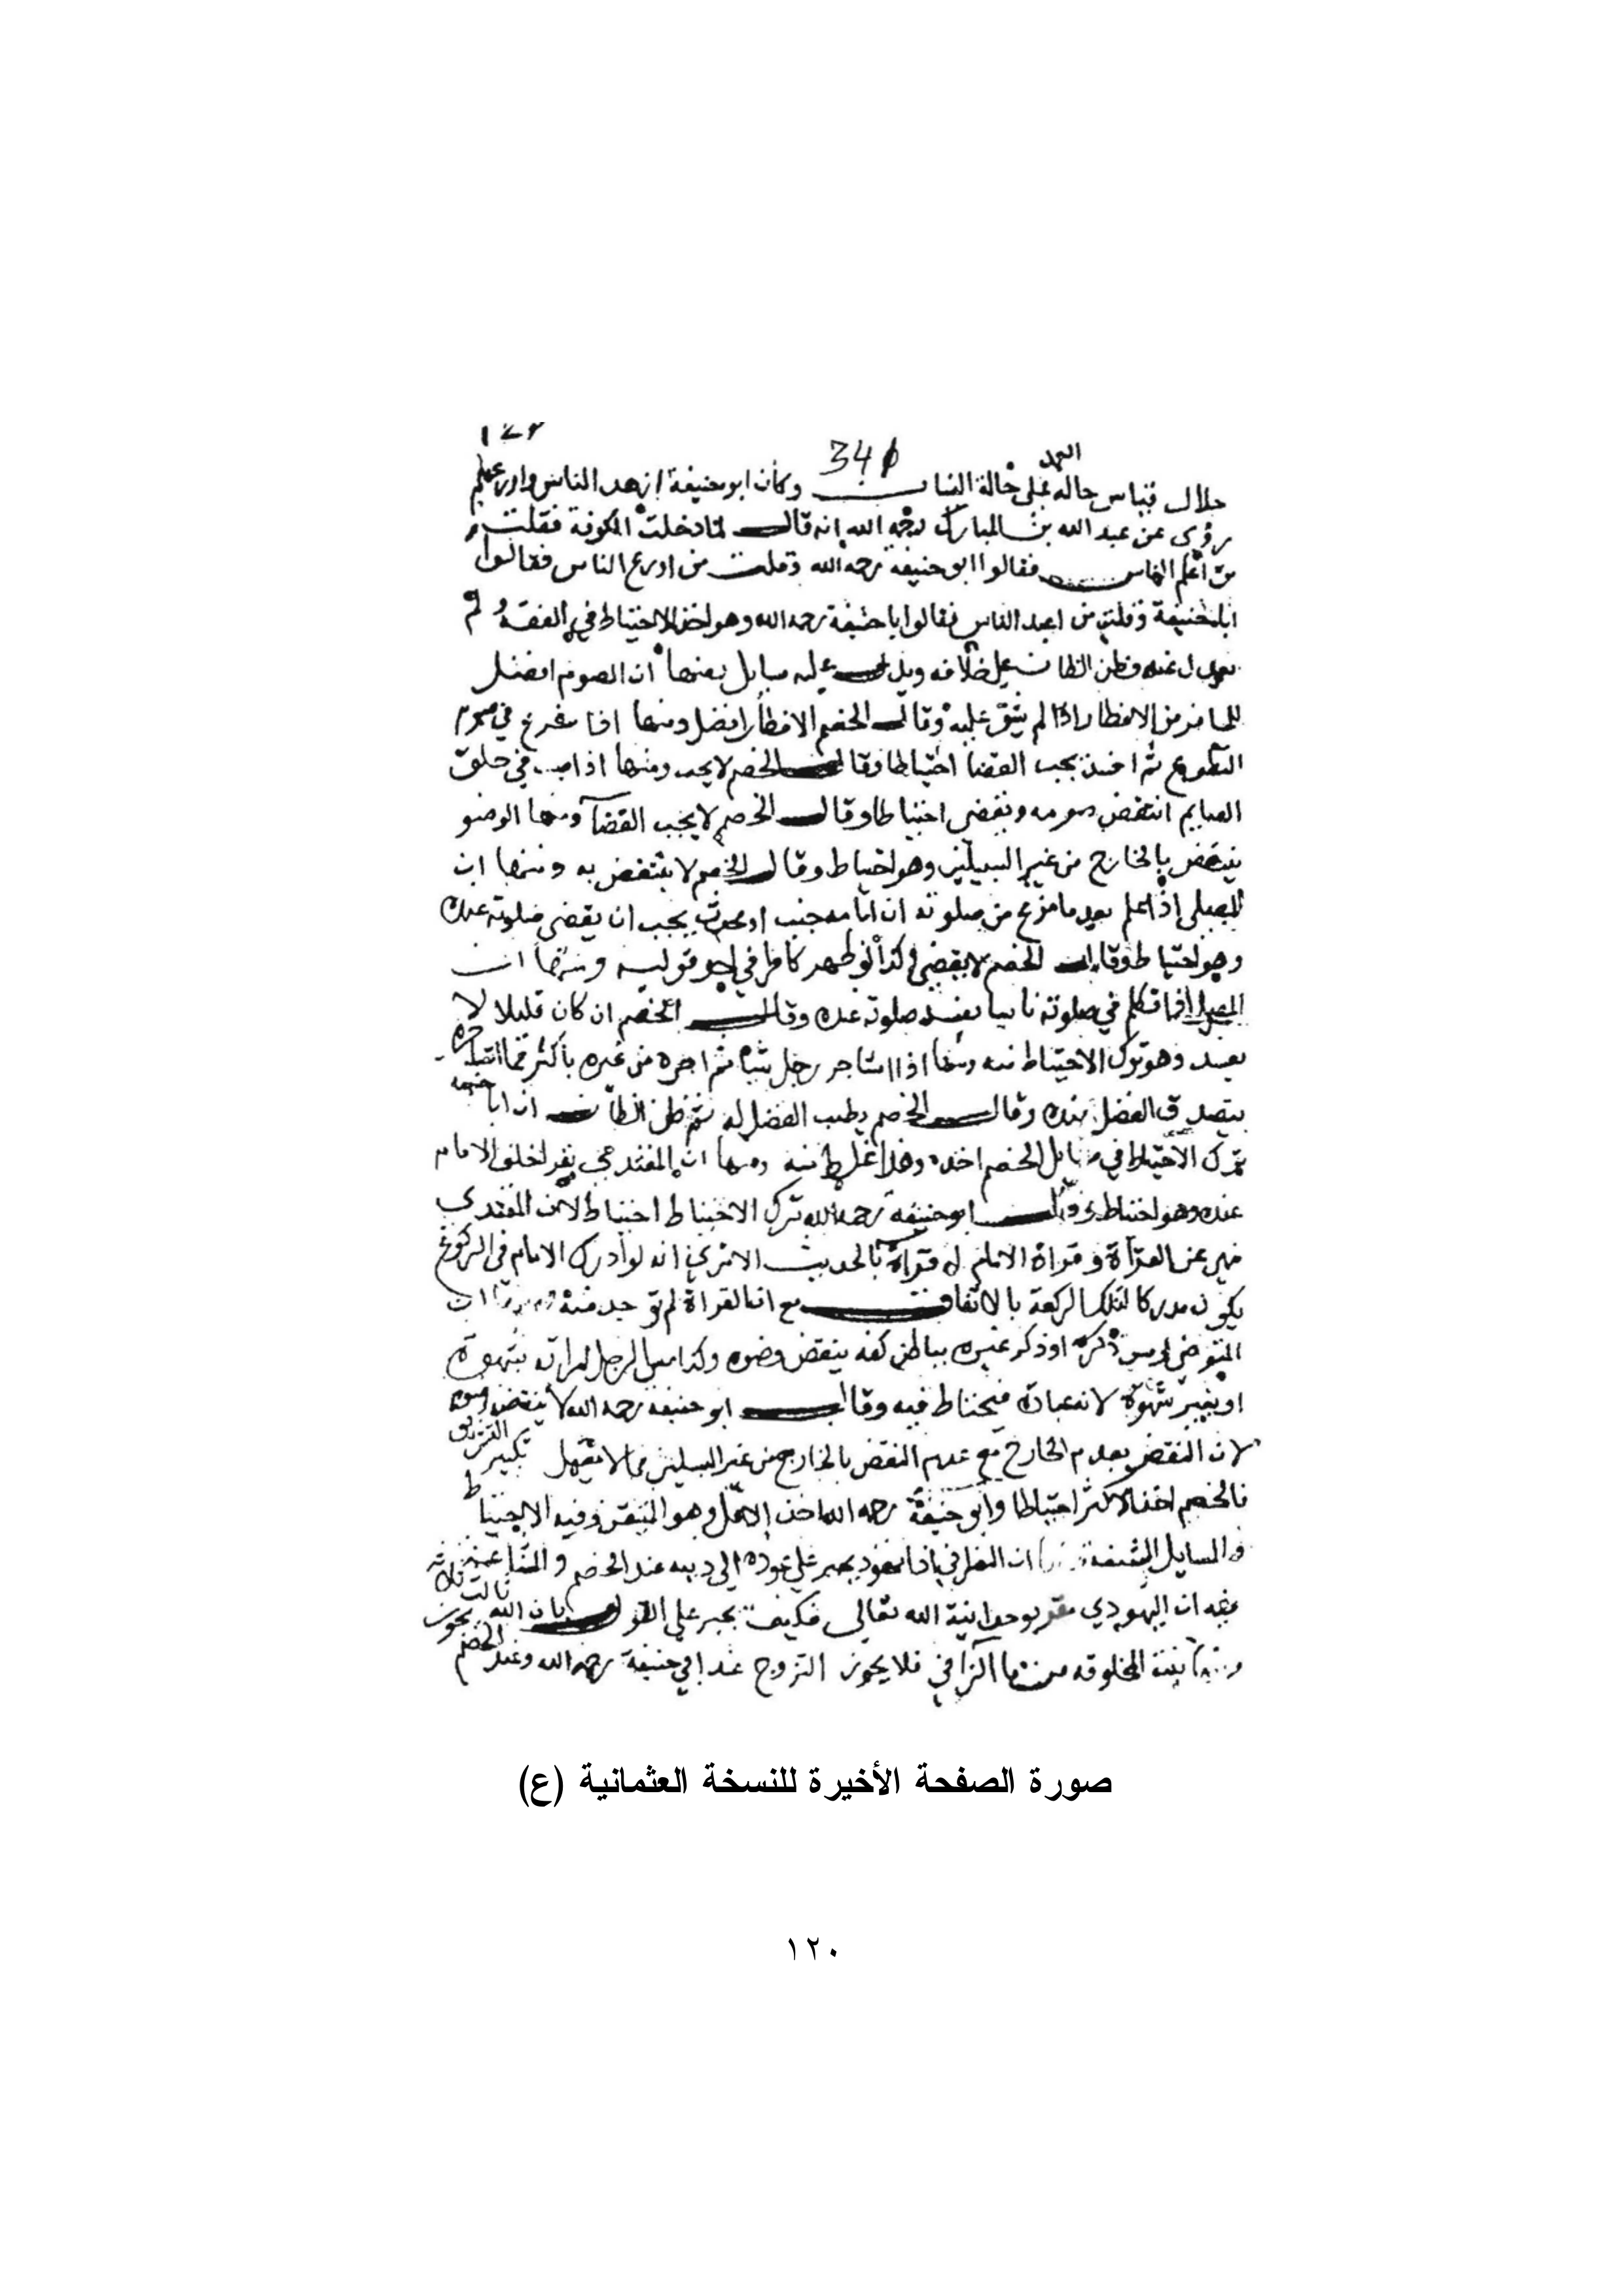 340
حلال فيباس حاله على حالة النساب وكان ابو حنيفة ازهد الناس واورعهم
روى عن عبد الله بن المبارك رحمه الله انه قال لما دخلت الكوفة فقلت
من اعلم الناس فقالوا ابو حنيفة رحمه الله وقلت من اورع الناس فقالوا
ابا حنيفة وقلت من اعبد الناس فقالوا ابا حنيفة رحمه الله وهو اخذ الاحتياط في الفقه ولم
يعدل عنه وظن الظان على خلافه ويدل عليه مسايل بعضها ان الصوم افضل
للمسافر من الافطار اذا لم يشق عليه وقال الخصم الافطار افضل ومنها اذا شرع في صوم
التطوع ثم افسد يجب القضا احتياطا وقال الخصم لا يجب ومنها اذا صب في حلق
الصايم انتقض صومه ويقضى احتياطا وقال الخصم لا يجب القضآ ومنها الوضو
ينتقض بالخارج من غير السبيلين وهو احتياط وقال الخصم لا ينتقض به ومنها ان
المصلى اذا علم بعد ما فرغ من صلوته ان امامه جنب او محدث يجب ان يقضى صلوته عنده
وهو احتياط وقال الخصم لا يقضى وكذا لو ظهر كافرا في احد قوليه ومنها ان
المصلى اذا تكلم في صلوته ناسيا يفسد صلوته عنده وقال الخصم ان كان قليلا لا
يفسد وهو ترك الاحتياط منه ومنها اذا استاجر رجل شيا ثم اجره من غيره باكثر مما استاجره
يتصدق الفضل عنده وقال الخصم يطيب الفضل له ثم ظن الظان ان ابا حنيفه
ترك الاحتياط في مسايل الخصم اخذه وهذا غلط منه ومنها ان المقتدى يقرا خلف الامام
عنده وهو احتياط وقال ابو حنيفه رحمه الله ترك الاحتياط احتياط لان المقتدى
نهى عن القرآة وقراة الامام له قراة بالحديث الا ترى انه لو ادرك الامام في الركوع
يكون مدركا لتلك الركعة بالاتفاق مع ان القراة لم توجد منه ومنها ان
المتوضى لو مس ذكره او ذكر غيره بباطن كفه ينتقض وضوه وكذا مس الرجل امراته بشهوة
او بغير شهوة لانه عبادة فيحتاط فيه وقال ابو حنيفة رحمه الله لا ينتقض وضوه
لان النقض بعدم الخارج مع عدم النقض بالخارج من غير السبيلين مما لا يعقل
فالخصم اخذ الاكثر احتياطا وابو حنيفة رحمه الله اخذ الاقل وهو المتيقن وفيه الاحتياط
والمسايل ان النصراني اذا تهود يجبر على عوده الى دينه عند الخصم
فيه ان اليهودي مقر بوحدانية الله تعالى فكيف يجبر على القول بان الله ثالث ثلاثة
بنته المخلوقه من ما الزاني فلا يجوز التزوج عند ابي حنيفة رحمه الله وعند الخصم يجوز
صورة الصفحة الأخيرة للنسخة العثمانية (ع)
١٢٠